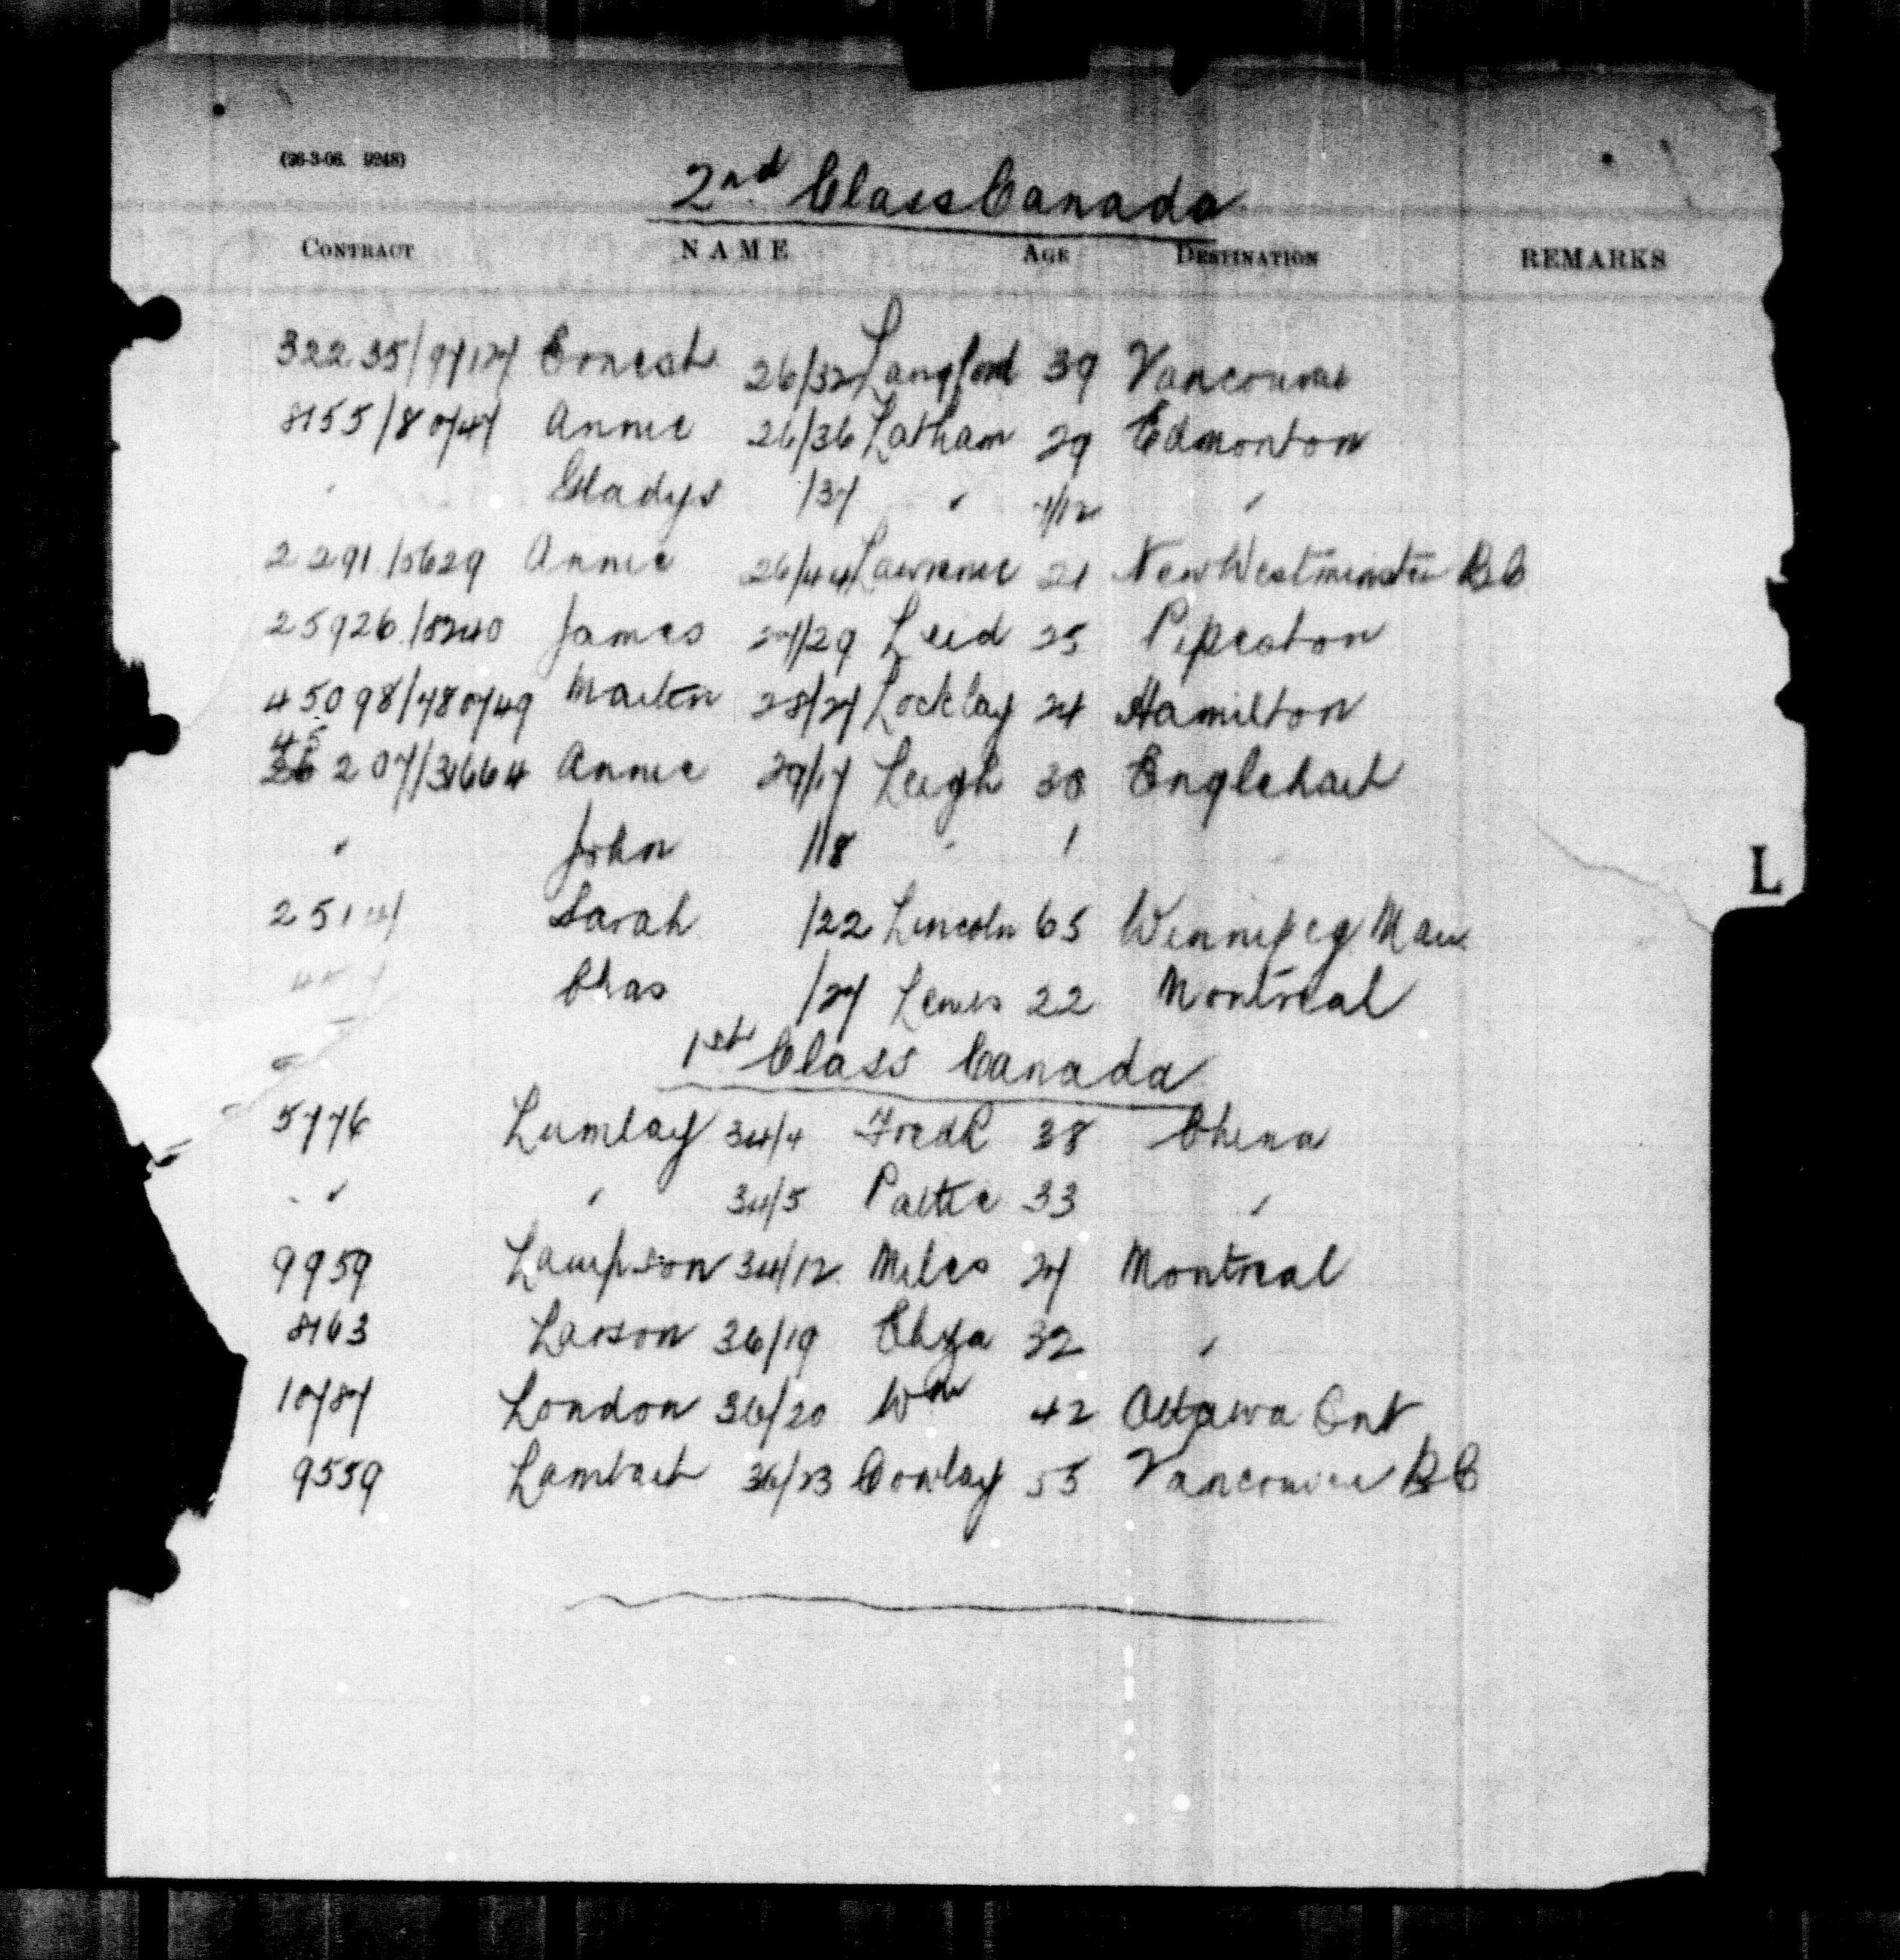 (26-3-06. 9248)
2nd. Class Canada
CONTRACT NAME AGE DESTINATION REMARKS
32235/97127 Ernest 26/32 Langford 39 Vancouver
8155/80747 Annie 26/36 Latham 29 Edmonton
Gladys /37 " /12 "
2291/5629 Annie 26/44 Lawrence 21 New Westminster BC
25926/8240 James 27/29 Leid 25 Pipeston
45098/78049 Martin 28/27 Locklay 24 Hamilton
45
207/31664 Annie 29/17 Leigh 38 Englehart
" John /18 " 1
L
Sarah /22 Lincoln 65 Winnipeg Man
Chas /27 Lewis 22 Montreal
1st Class Canada
5776 Lumlay 34/4 Fredk 38 China
" " 34/5 Pattie 33 "
9959 Lampson 34/12 Miles 27 Montreal
8163 Larson 36/19 Eliza 32 "
10787 London 36/20 Wm 42 Ottawa Ont
9559 Lambert 36/23 Cowlay 55 Vancouver BC